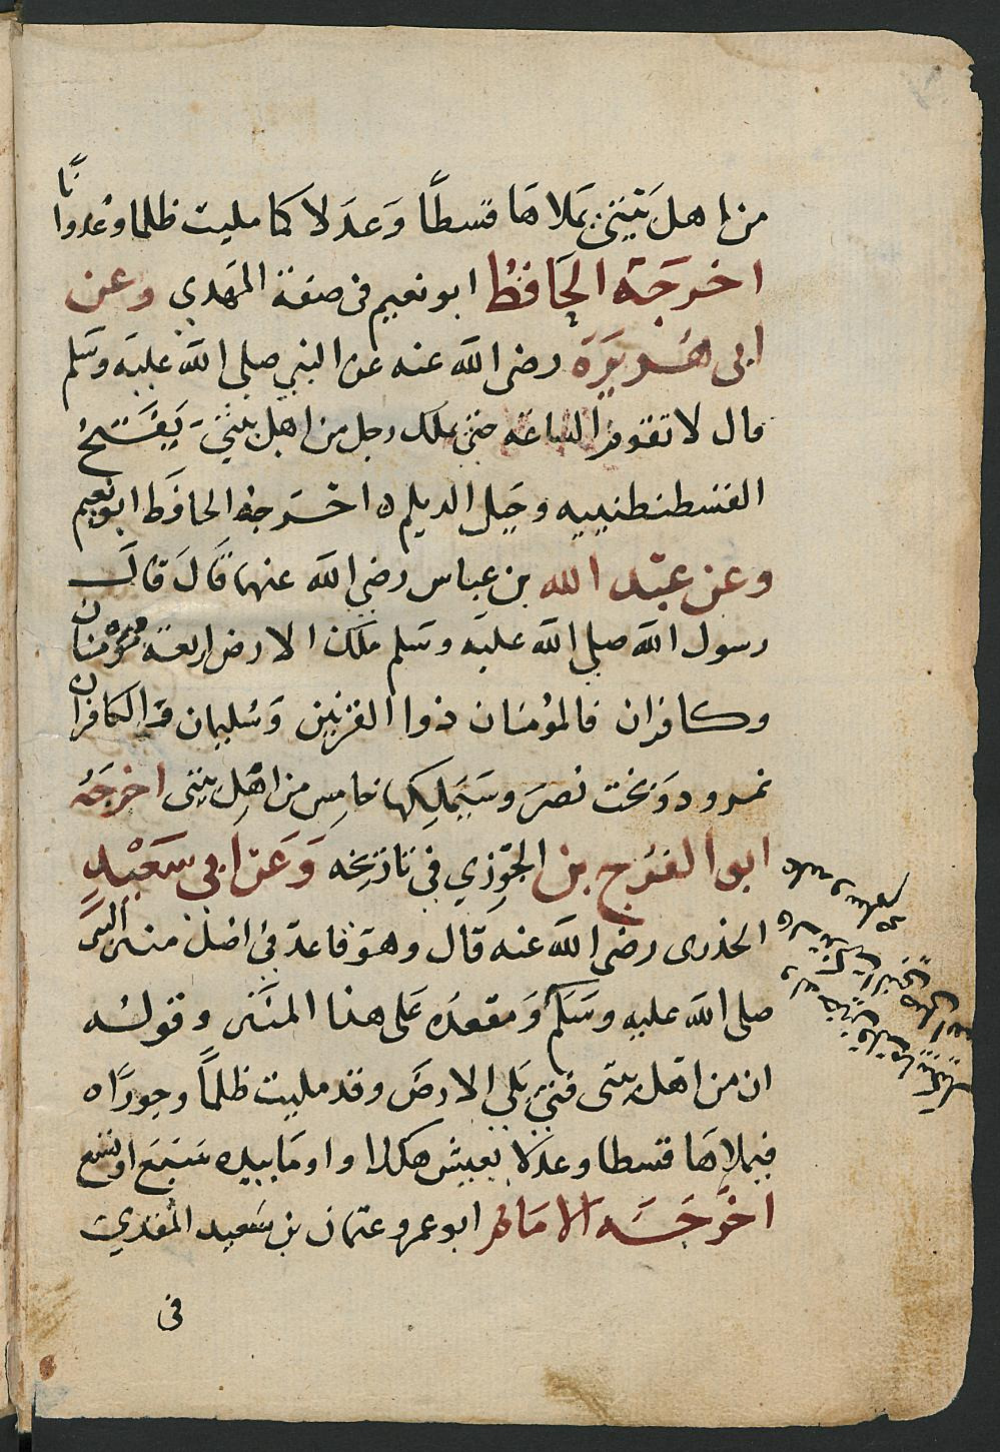 من اهل بيتي يملاها قسطًا وَعدَلا كما مليت ظلما وعُدوانًا
اخرجَهُ الحَافظُ ابو نعيم في صفة المَهدي وعن
ابى هُريَرَة رضى الله عنه عن النبي صلى الله عليه وسَلم
قال لا تقوم الساعَة حتى يملك رجل من اهل بيتي يَفتَحُ
القسطنطينييه وجَبل الديلم ه اخرَجهُ الحافَظ ابو نعيم
وعن عبد الله بن عباس رضي الله عنهما قَالَ قَالَ
رسول الله صلى الله عليه وسَلم ملَك الارض اربعة مؤمنان
وكافران فالمؤمنان ذوا القرنين وَسُليمان وَالكافران
نمرود وَبخت نصرَ وسَيَملِكها خامِس من اهْلِ بيتى اخرجَهُ
ابو الفرَج بن الجَوزي في تاريخه وَعَن ابي سَعيْدٍ
الخدرى رضى الله عنه قال وهوَ قاعدّ في اصْل منبر النبى
صلى الله عليه وسَلم وَمقعدُه عَلى هذا المنبَر وقولُه
ان من اهل بيتى فتى يَلي الارضَ وقد مليت ظلمًا وجورًا ه
فيملاهَا قسطا وعدَلا يعيش هكذا واومَا بيده سَبَع او تسع
اخرَجَه الامَام ابو عمرو عثمان بن سَعيد المُقري
في